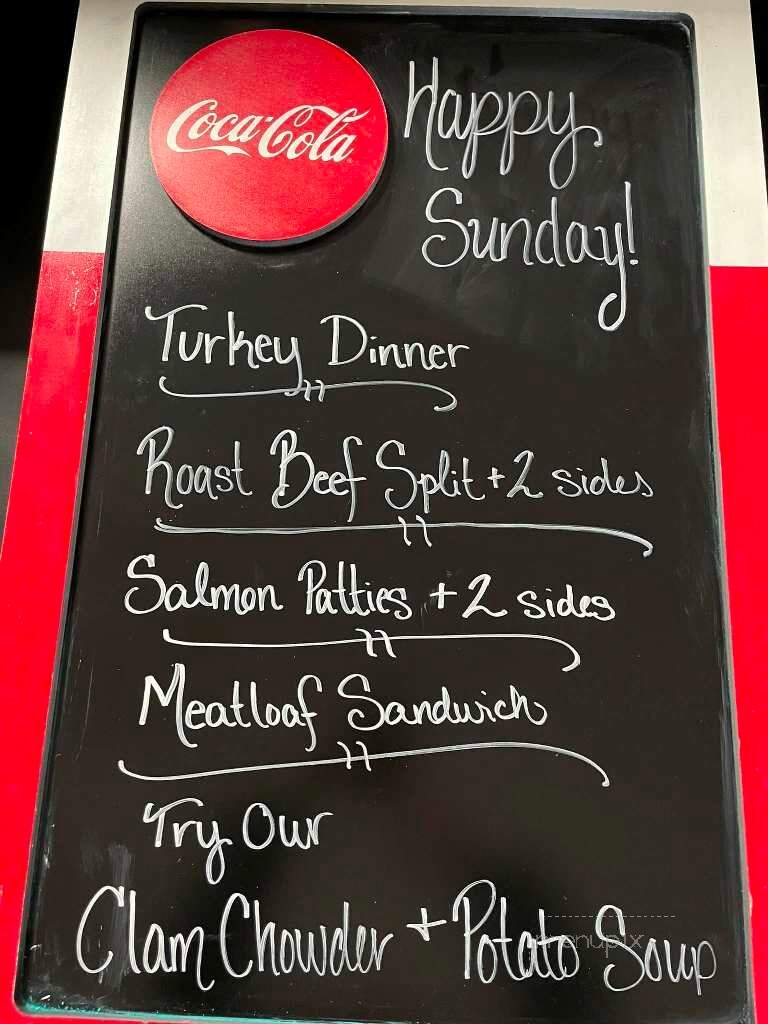 Coca-Cola
Happy
Sunday!
Turkey Dinner
Roast Beef Split + 2 sides
Salmon Patties + 2 sides
Meatloaf Sandwich
Try Our
Clam Chowder + Potato Soup
menupix